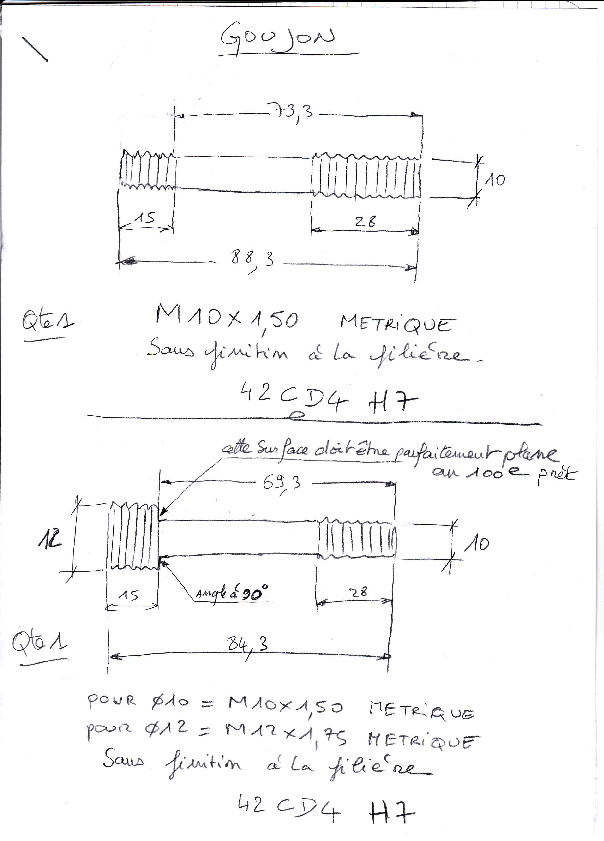 GOUJON
73,3
10
15
28
88,3
Qte 1
M10x1,50 METRIQUE
Sans finition à la filière.
42CD4 H7
cette surface doit être parfaitement plane
au 100e prêt
69,3
12
10
15
Angle à 90°
28
Qte 1
84,3
pour ø10 = M10x1,50 METRIQUE
pour ø12 = M12x1,75 METRIQUE
Sans finition à la filière
42CD4 H7